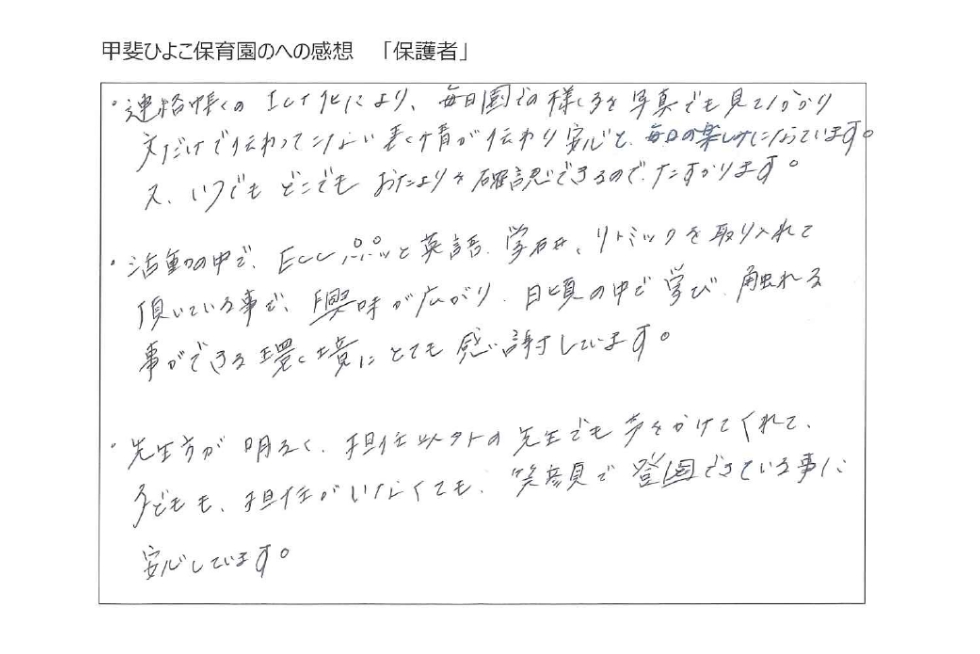 甲斐ひよこ保育園のへの感想　「保護者」
・連絡帳の ICT化により、毎日園での様子を写真でも見てわかり
文だけで伝わってこない表情が伝わり安心と、毎日の楽しみになっています。
又、いつでも どこでも おたよりを 確認できるので、たすかります。
・活動の中で、ECC 英語、学研、リトミックを取り入れて
頂いている事で、興味が広がり、日頃の中で学び、触れる
事ができる環境にとても感謝しています。
・先生方が 明るく、担任以外の先生でも声をかけてくれて、
子どもも、担任がいなくても、笑顔で登園できている事に
安心しています。